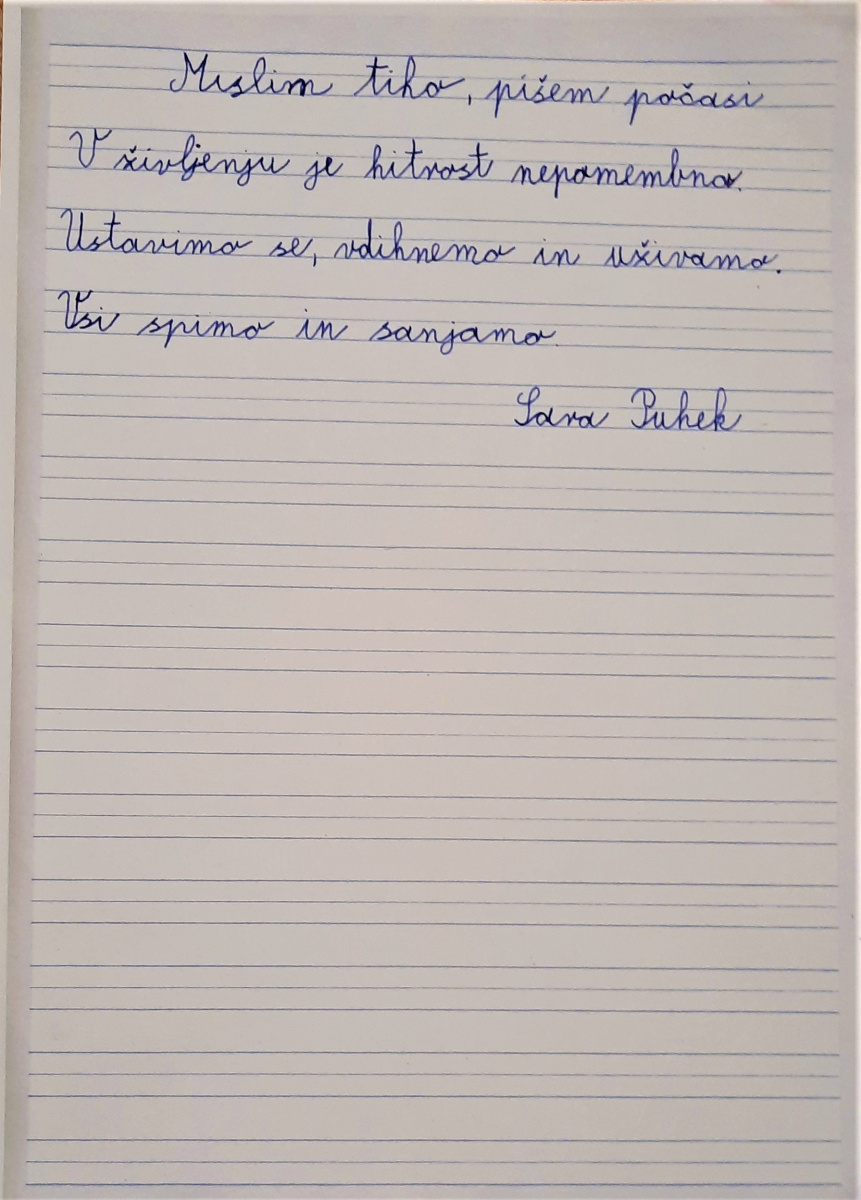 Mislim tiho, pišem počasi
V življenju je hitrost nepomembna.
Ustavimo se, vdihnemo in uživamo.
Vsi spimo in sanjamo.
Sara Puhek